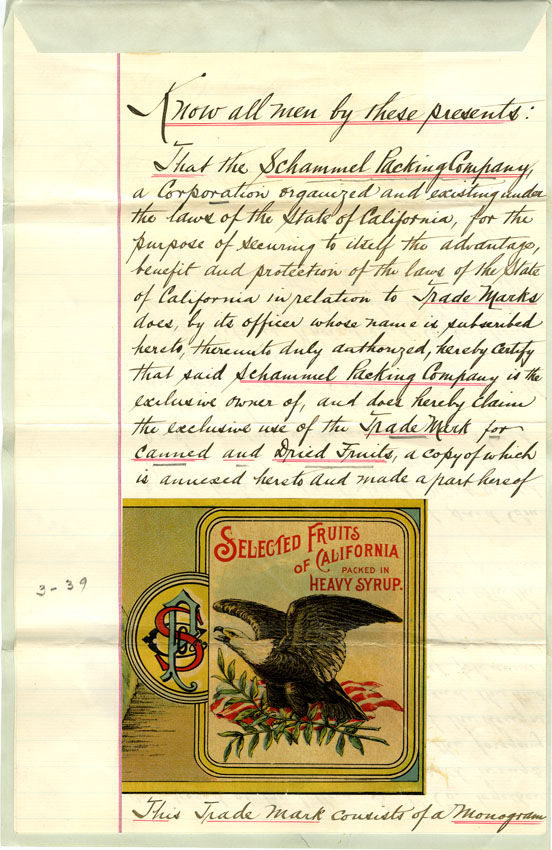 Know all men by these presents:
That the Schammel Packing Company,
a Corporation organized and existing under
the laws of the State of California, for the
purpose of securing to itself the advantage,
benefit and protection of the laws of the State
of California in relation to Trade Marks
does, by its officer whose name is subscribed
hereto, thereunto duly authorized, hereby certify
that said Schammel Packing Company is the
exclusive owner of, and does hereby claim
the exclusive use of the Trade Mark for
canned and Dried Fruits, a copy of which
is annexed hereto and made a part hereof
SELECTED FRUITS
OF CALIFORNIA
PACKED IN
HEAVY SYRUP.
3-39
This Trade Mark consists of a Monogram